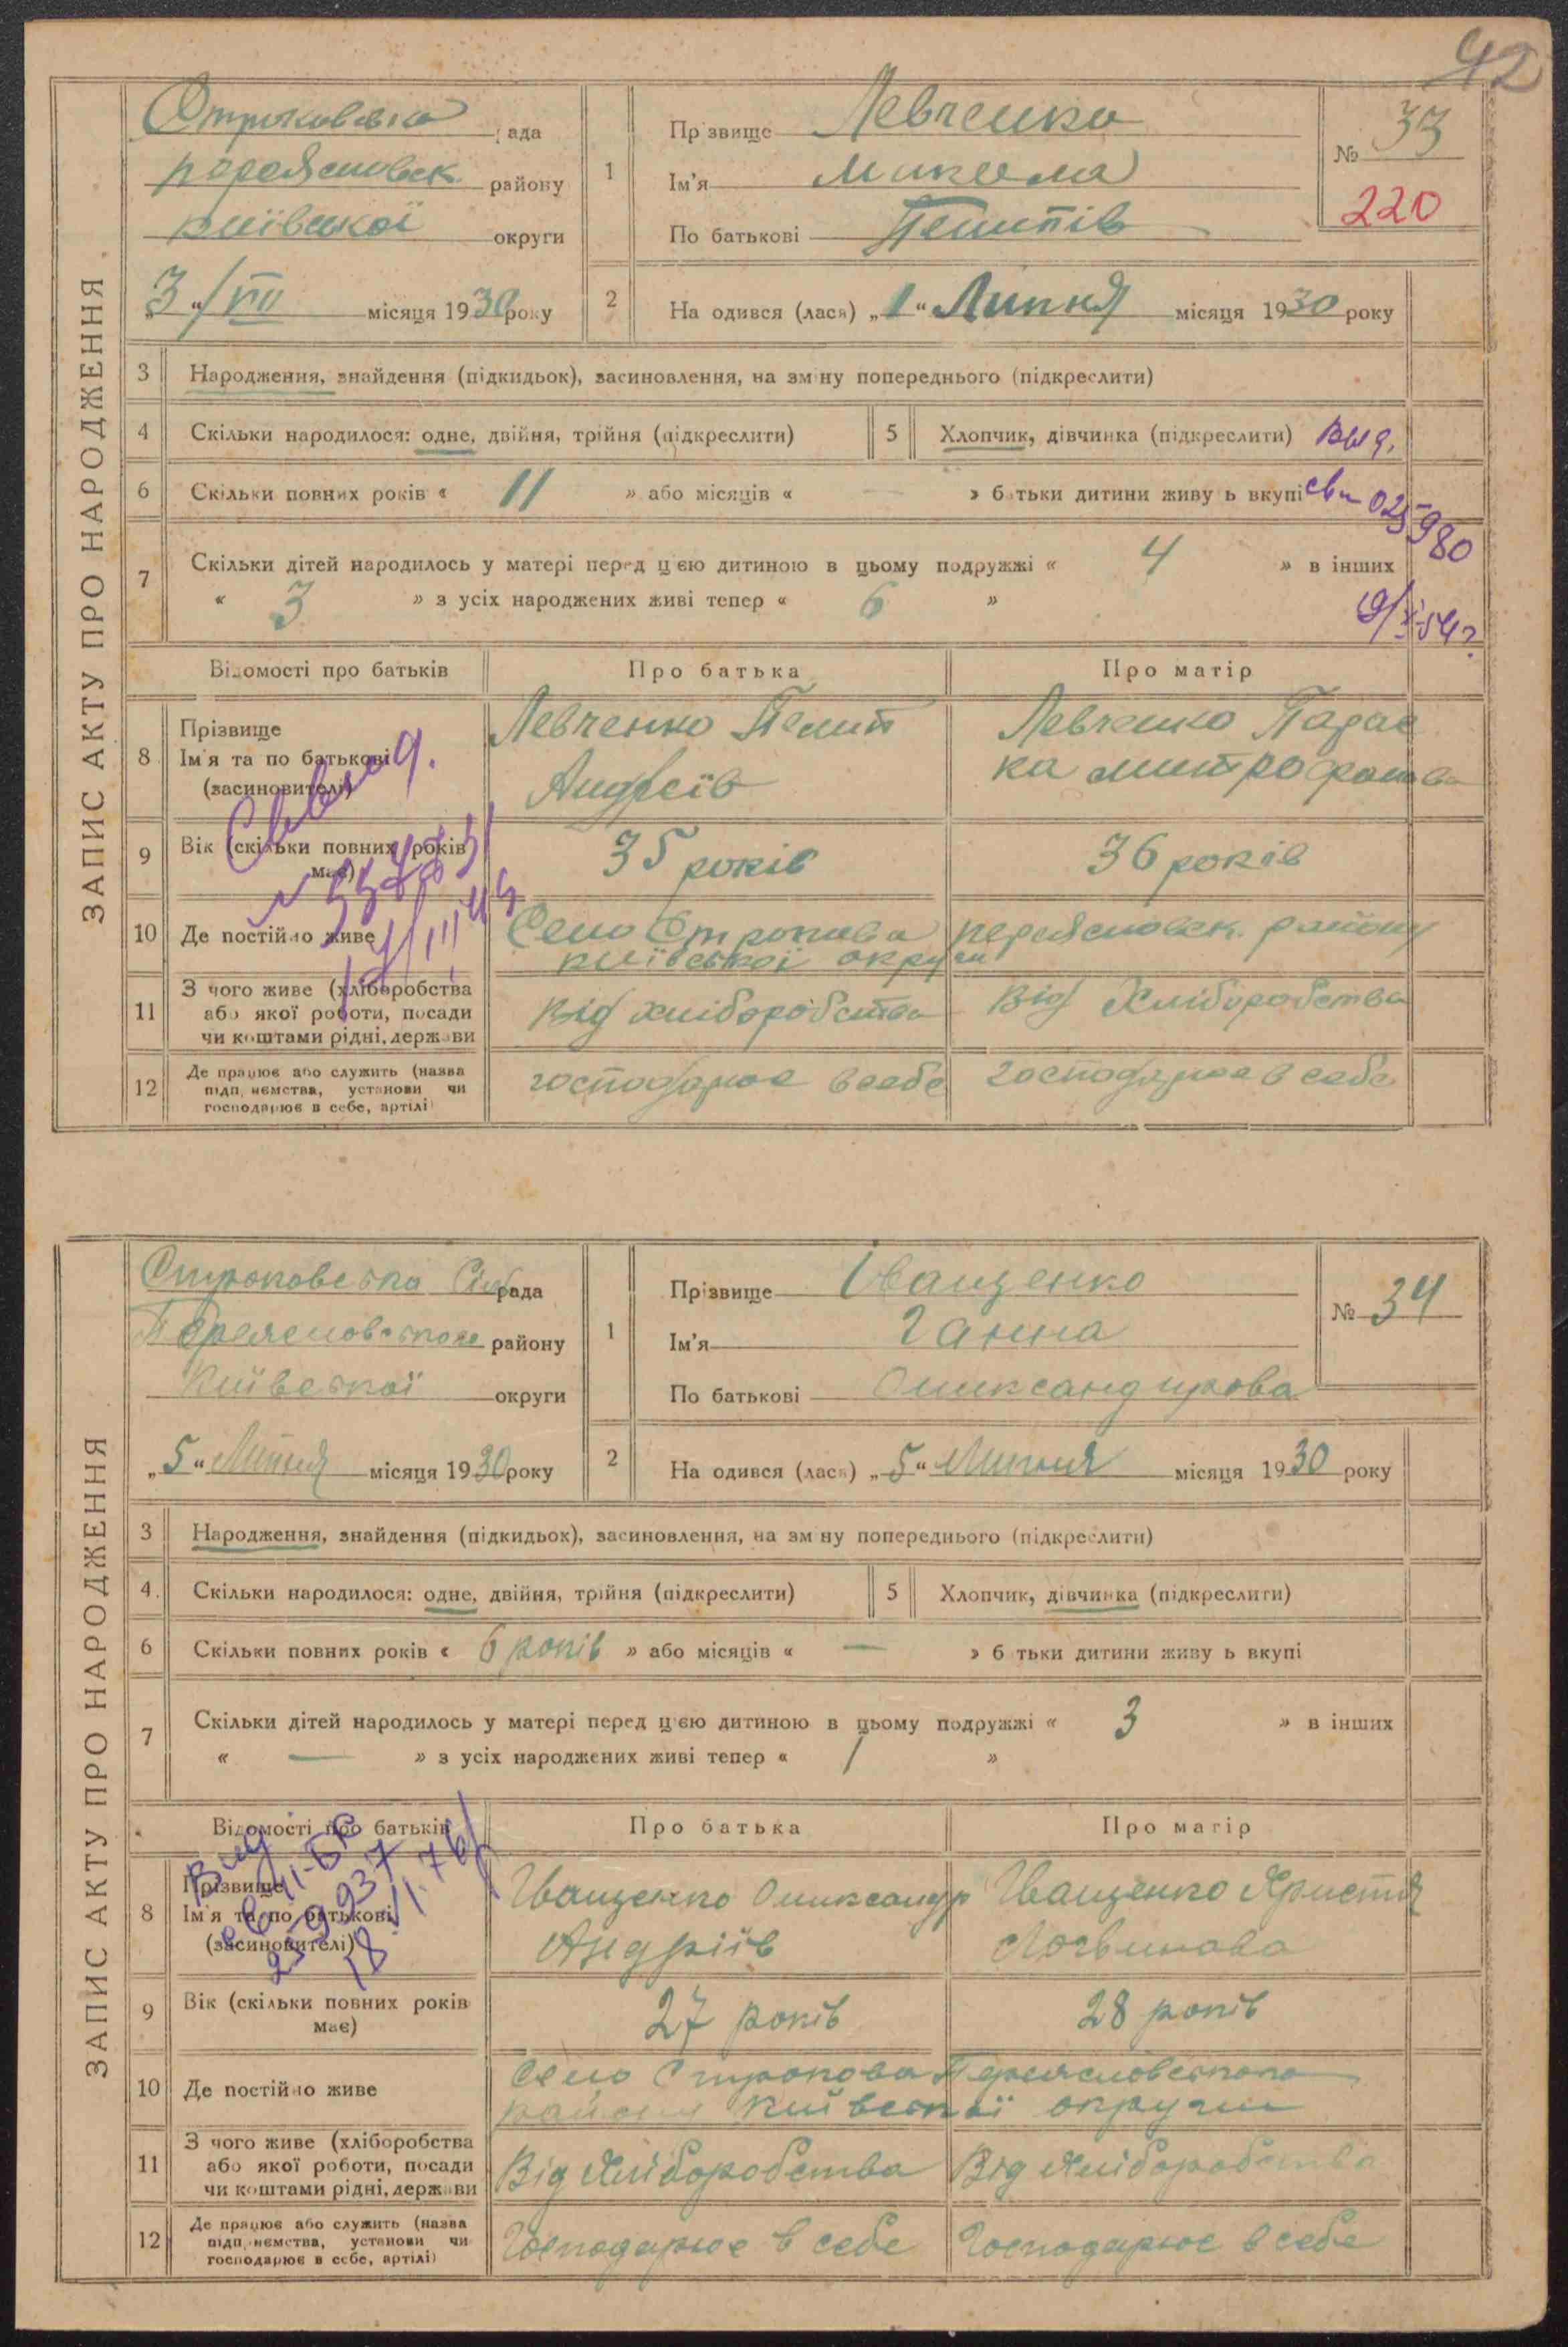 42
ЗАПИС АКТУ ПРО НАРОДЖЕННЯ
рада
району
київської округи
"3" / VII місяця 1930 року
1
Прізвище Левченко
Ім'я Микола
По батькові
№ 33
220
2
Народився (лася) "1" Липня місяця 1930 року
3 Народження, знайдення (підкидьок), засиновлення, на зміну попереднього (підкреслити)
4 Скільки народилося: одне, двійня, трійня (підкреслити)
5 Хлопчик, дівчинка (підкреслити) Выд.
6 Скільки повних років « 11 » або місяців « — » батьки дитини живуть вкупі
7 Скільки дітей народилось у матері перед цією дитиною в цьому подружжі « 4 » в інших
« 3 » з усіх народжених живі тепер « 6 »
Відомості про батьків
Про батька
Про матір
8 Прізвище
Ім'я та по батькові
(засновителі)
Левченко
Андреїв
Левченко Парас
ка митрофанова
9 Вік (скільки повних років
має)
35 років
36 років
10 Де постійно живе
Село Строкова переясловск. району
київської округи
11 З чого живе (хліборобства
або якої роботи, посади
чи коштами рідні, держави
Від хліборобства
Від Хліборобства
12 Де працює або служить (назва
підприємства, установи чи
господарює в себе, артілі)
господарює в себе
господарює в себе
ЗАПИС АКТУ ПРО НАРОДЖЕННЯ
Строковська Сільрада
району
Київської округи
"5" Липня місяця 1930 року
1
Прізвище Іващенко
Ім'я Ганна
По батькові Олександрова
№ 34
2
Народився (лася) "5" Липня місяця 1930 року
3 Народження, знайдення (підкидьок), засиновлення, на зміну попереднього (підкреслити)
4. Скільки народилося: одне, двійня, трійня (підкреслити)
5 Хлопчик, дівчинка (підкреслити)
6 Скільки повних років « 6 років » або місяців « — » батьки дитини живуть вкупі
7 Скільки дітей народилось у матері перед цією дитиною в цьому подружжі « 3 » в інших
« — » з усіх народжених живі тепер « 1 »
Відомості про батьків
Про батька
Про матір
8 Прізвище
Ім'я та по батькові
(засиновителі)
Іващенко Олександр
Андріїв
Іващенко Христя
Логвинова
9 Вік (скільки повних років
має)
27 років
28 років
10 Де постійно живе
Село Строкова Переясловського
району Київської округи
11 З чого живе (хліборобства
або якої роботи, посади
чи коштами рідні, держави
Від Хліборобства
Від Хліборобства
12 Де працює або служить (назва
підприємства, установи чи
господарює в себе, артілі)
Господарює в себе
Господарює в себе